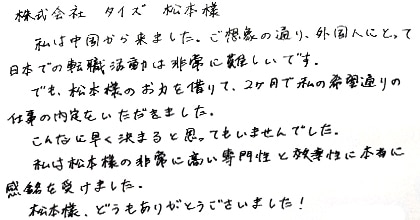 株式会社 タイズ 松本様
私は中国から来ました。ご想象の通り、外国人にとって
日本での転職活動は非常に難しいです。
でも、松本様のお力を借りて、2ヶ月で私の希望通りの
仕事の内定をいただきました。
こんなに早く決まると思ってもいませんでした。
私は松本様の非常に高い専門性と効率性に本当に
感銘を受けました。
松本様、どうもありがとうございました!